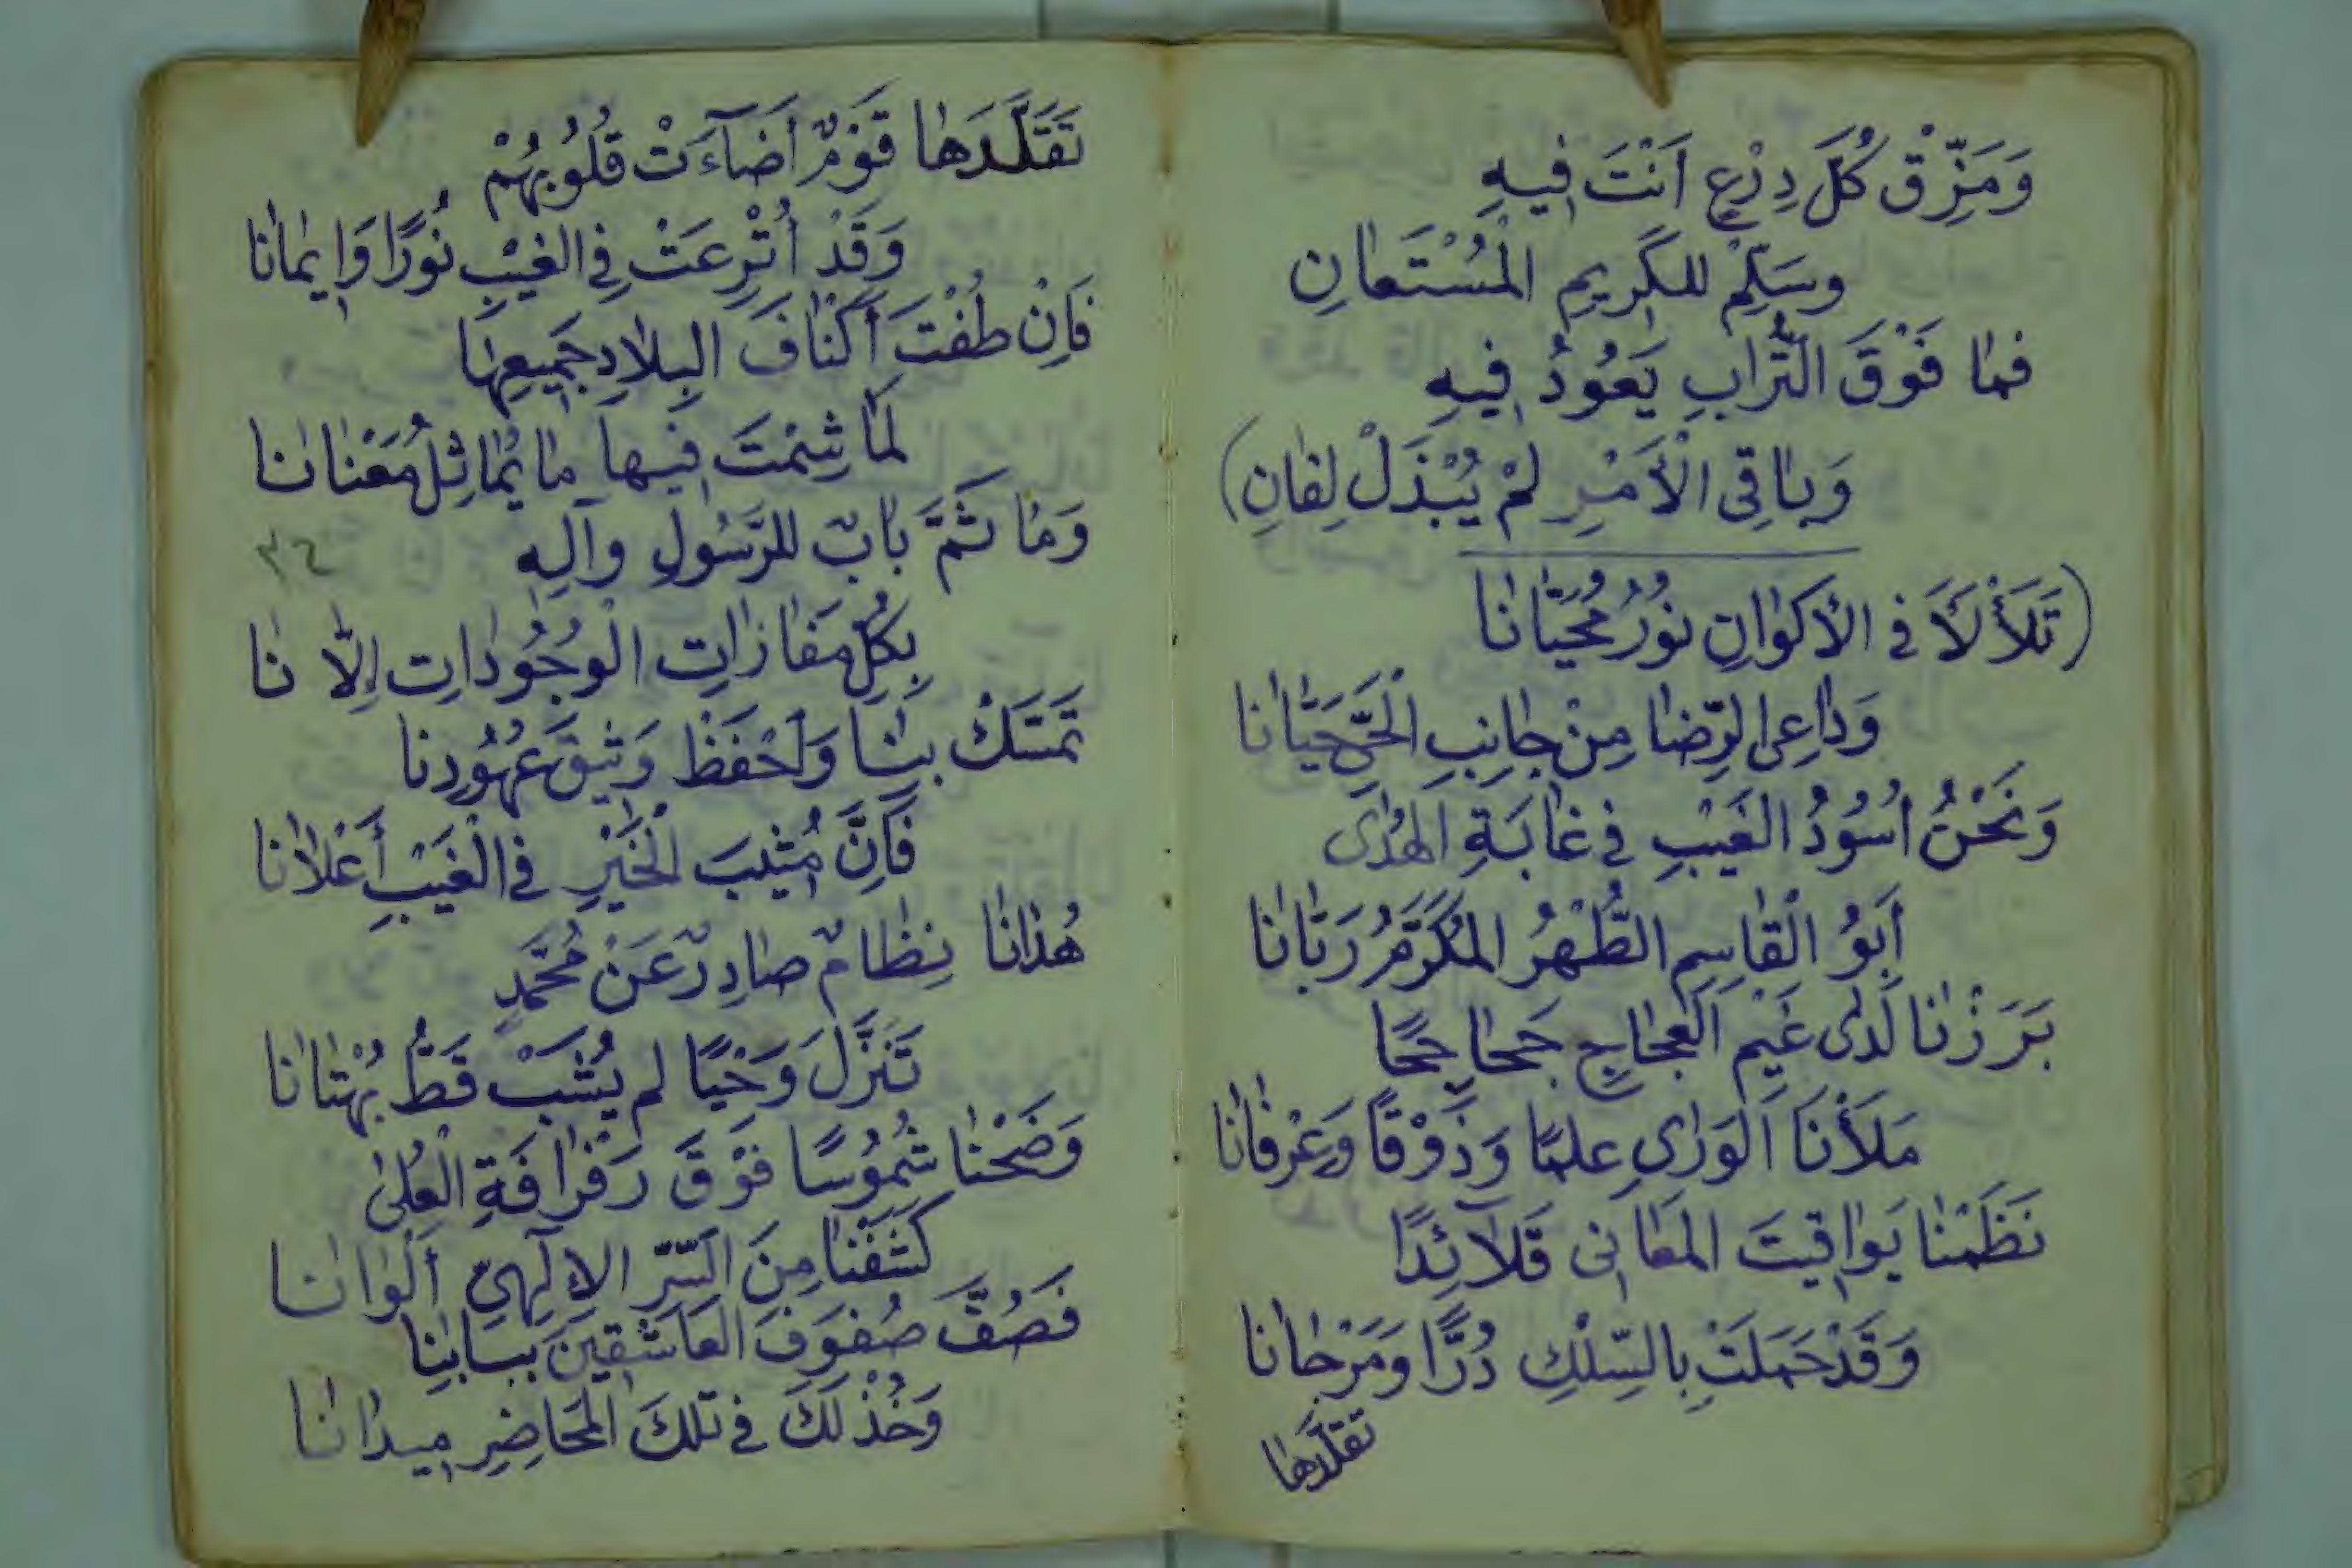 وَمَزِّقْ كُلَّ دِرْعٍ اَنْتَ فِيهِ
وسَلِّمْ للكَرِيمِ المُسْتَعَانِ
فما فَوْقَ التُّرَابِ يَعُودُ فِيهِ
وَبَاقِى الْأَمْرِ لَمْ يُبْذَلْ لِفَانِ)
(تَلَأْلَأَ فى الأكوَانِ نُورُ مُحَيَّانَا
وَدَاعِى الرِّضَا مِنْ جَانِبِ الْحَىِّ حَيَّانَا
وَنَحْنُ اُسُودُ الغَيْبِ فِي غَابَةِ الهُدَى
أَبُو الْقَاسِمِ الطُّهْرُ المُكَرَّمُ رَبَّانَا
بَرَزْنَا لَدَى غَيْمِ العَجَاجِ جَحَاجِحًا
مَلَأْنَا الْوَرَى عِلمًا وَذَوْقًا وَعِرْفَانَا
نَظَمْنَا يَوَاقِيتَ المَعَانِى قَلَآئِدًا
وَقَدْ حَمَلَتْ بِالسِّلْكِ دُرًّا وَمَرْجَانَا
تقلّدَها
تَقَلَّدَهَا قَوْمٌ اَضَآءَتْ قُلُوبُهُمْ
وَقَدْ أُتْرِعَتْ فِي الغَيْبِ نُورًا وَإِيمَانَا
فَاِنْ طُفْتَ أَكْنَافَ البِلَادِ جَمِيعِهَا
لَمَا شِمْتَ فِيها مَا يُمَاثِلُ مَعْنَانَا
وَمَا ثَمَّ بَابٌ للرَّسُولِ وآلِهِ
٣٤
بِكُلِّ مَفَازَاتِ الْوُجُودَاتِ اِلَّا نَا
تَمَسَّكْ بِنَا وَاحْفَظْ وَثِيقَ عُهُودِنَا
فَاِنَّ مُثِيبَ الْخَيْرِ فِي الْغَيْبِ أَعْلَانَا
هُدَانَا نِظَامٌ صَادِرٌ عَنْ مُحَمَّدٍ
تَنَزَّلَ وَحْيًا لم يُشَبْ قَطُّ بُهْتَانَا
وَضَحْنَا شُمُوسًا فَوْقَ رَفْرَافَةِ الْعُلَىٰ
كَشَفْنَا مِنَ السِّرِّ الإِلَهِيّ أَلْوَانَا
فَصُفَّ صُفُوفَ العَاشِقِينَ بِبَابِنَا
وَخُذْ لَكَ فِي تلكَ المَحَاضِرِ مِيدَانَا